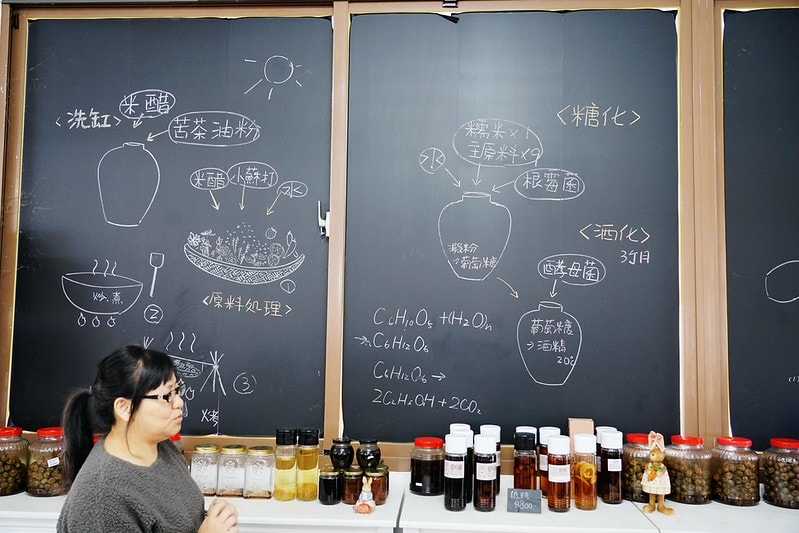 <洗缸>
米醋
苦茶油粉
米醋
小蘇打
水
①
<原料處理>
炒煮
②
③
火烤
<糖化>
糯米×1
主原料×9
水
根霉菌
澱粉
→葡萄糖
<酒化>
3个月
酵母菌
葡萄糖
→酒精
20%
C6H10O5+(H2O)n
→C6H12O6
C6H12O6→
2C2H5OH+2CO2